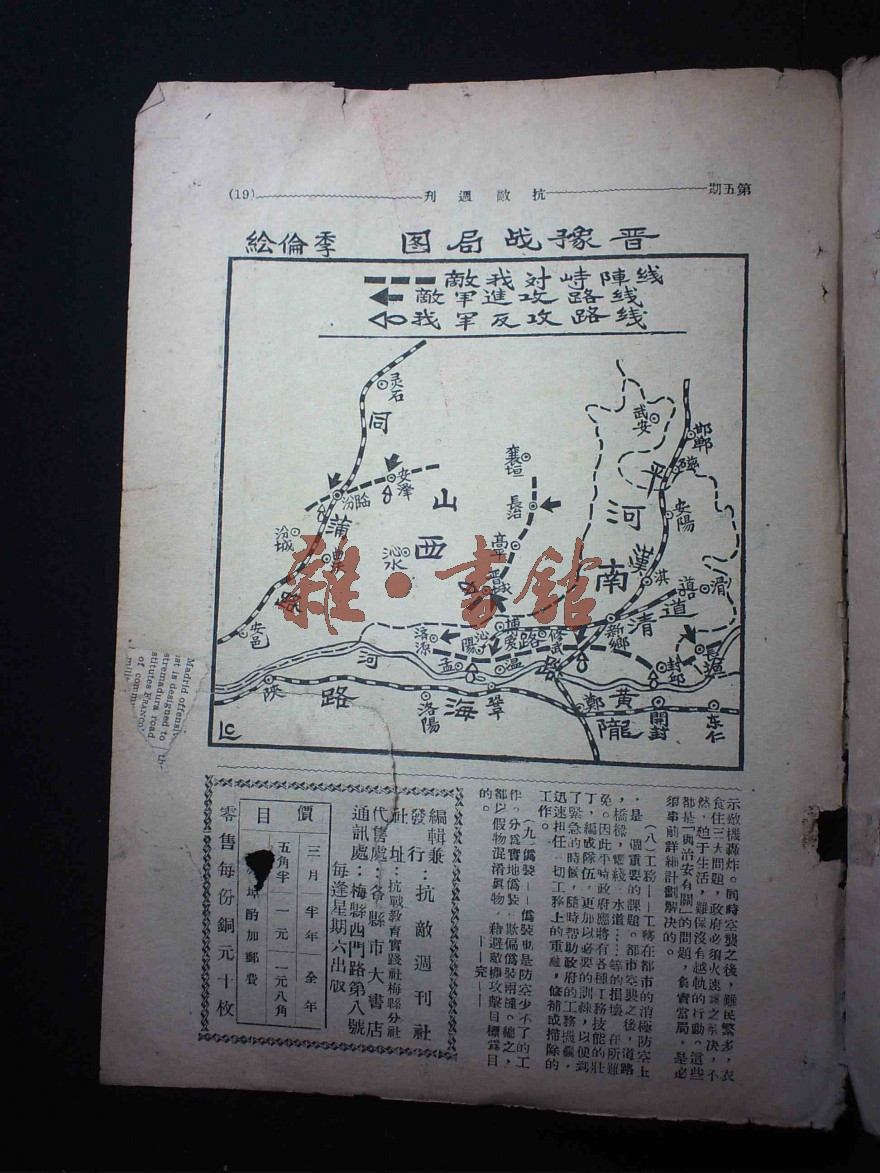 第五期
抗敵週刊
(19)
晋豫战局图
季倫绘
敵我对峙陣线
敵軍進攻路线
我軍反攻路线
灵石
同
武安
邯鄲
磁
平
襄垣
安澤
臨汾
山
長治
河
安陽
汾城
蒲
沁水
西
高平
漢
曲沃
晋城
南
淇
道口
滑
道
清
安邑
博愛
新鄉
濟源
沁陽
路
修武
長垣
封邱
河
孟
温
陝
路
洛陽
海
鞏
鄭
黃
隴
開封
东仁
雜·書館
Madrid offensiv
st is designed to
stremadura road
stitutes FRANCO'
of comm
示敵機轟炸。同時空襲之後，難民繁多，衣
食住三大問題，政府必須火速謀之解决，不
然，廹于生活，難保沒有越軌的行動。這些
都是「與治安有關」的問題，負責當局，是必
須事前詳細計劃解决的。
（八）工務——工務在都市的消極防空上
，是一個重要的課題。都市空襲之後，道路
，橋樑，電綫，水道……等的損壞，在所難
免。因此平時政府應將有各種工務技能的壯
丁，編成隊伍，更加以必要的訓練，以便到
了緊急的時候，隨時帮助政府的工務機關，
迅速担任一切工務上的重繕，修補或掃除的
工作。
（九）僞裝——僞裝也是防空少不了的工
作。分爲實地僞裝，欺偏僞裝兩種。總之，
都以假物混淆眞物，藉避敵機攻擊目標爲目
的。
——完——
編輯兼發行：抗敵週刊社
社址：抗戰教育實踐社梅縣分社
代售處：各縣市大書店
通訊處：梅縣西門路第八號
每逢星期六出版
價目
三月 半年 全年
五角半 一元 一元八角
埠酌加郵費
零售每份銅元十枚